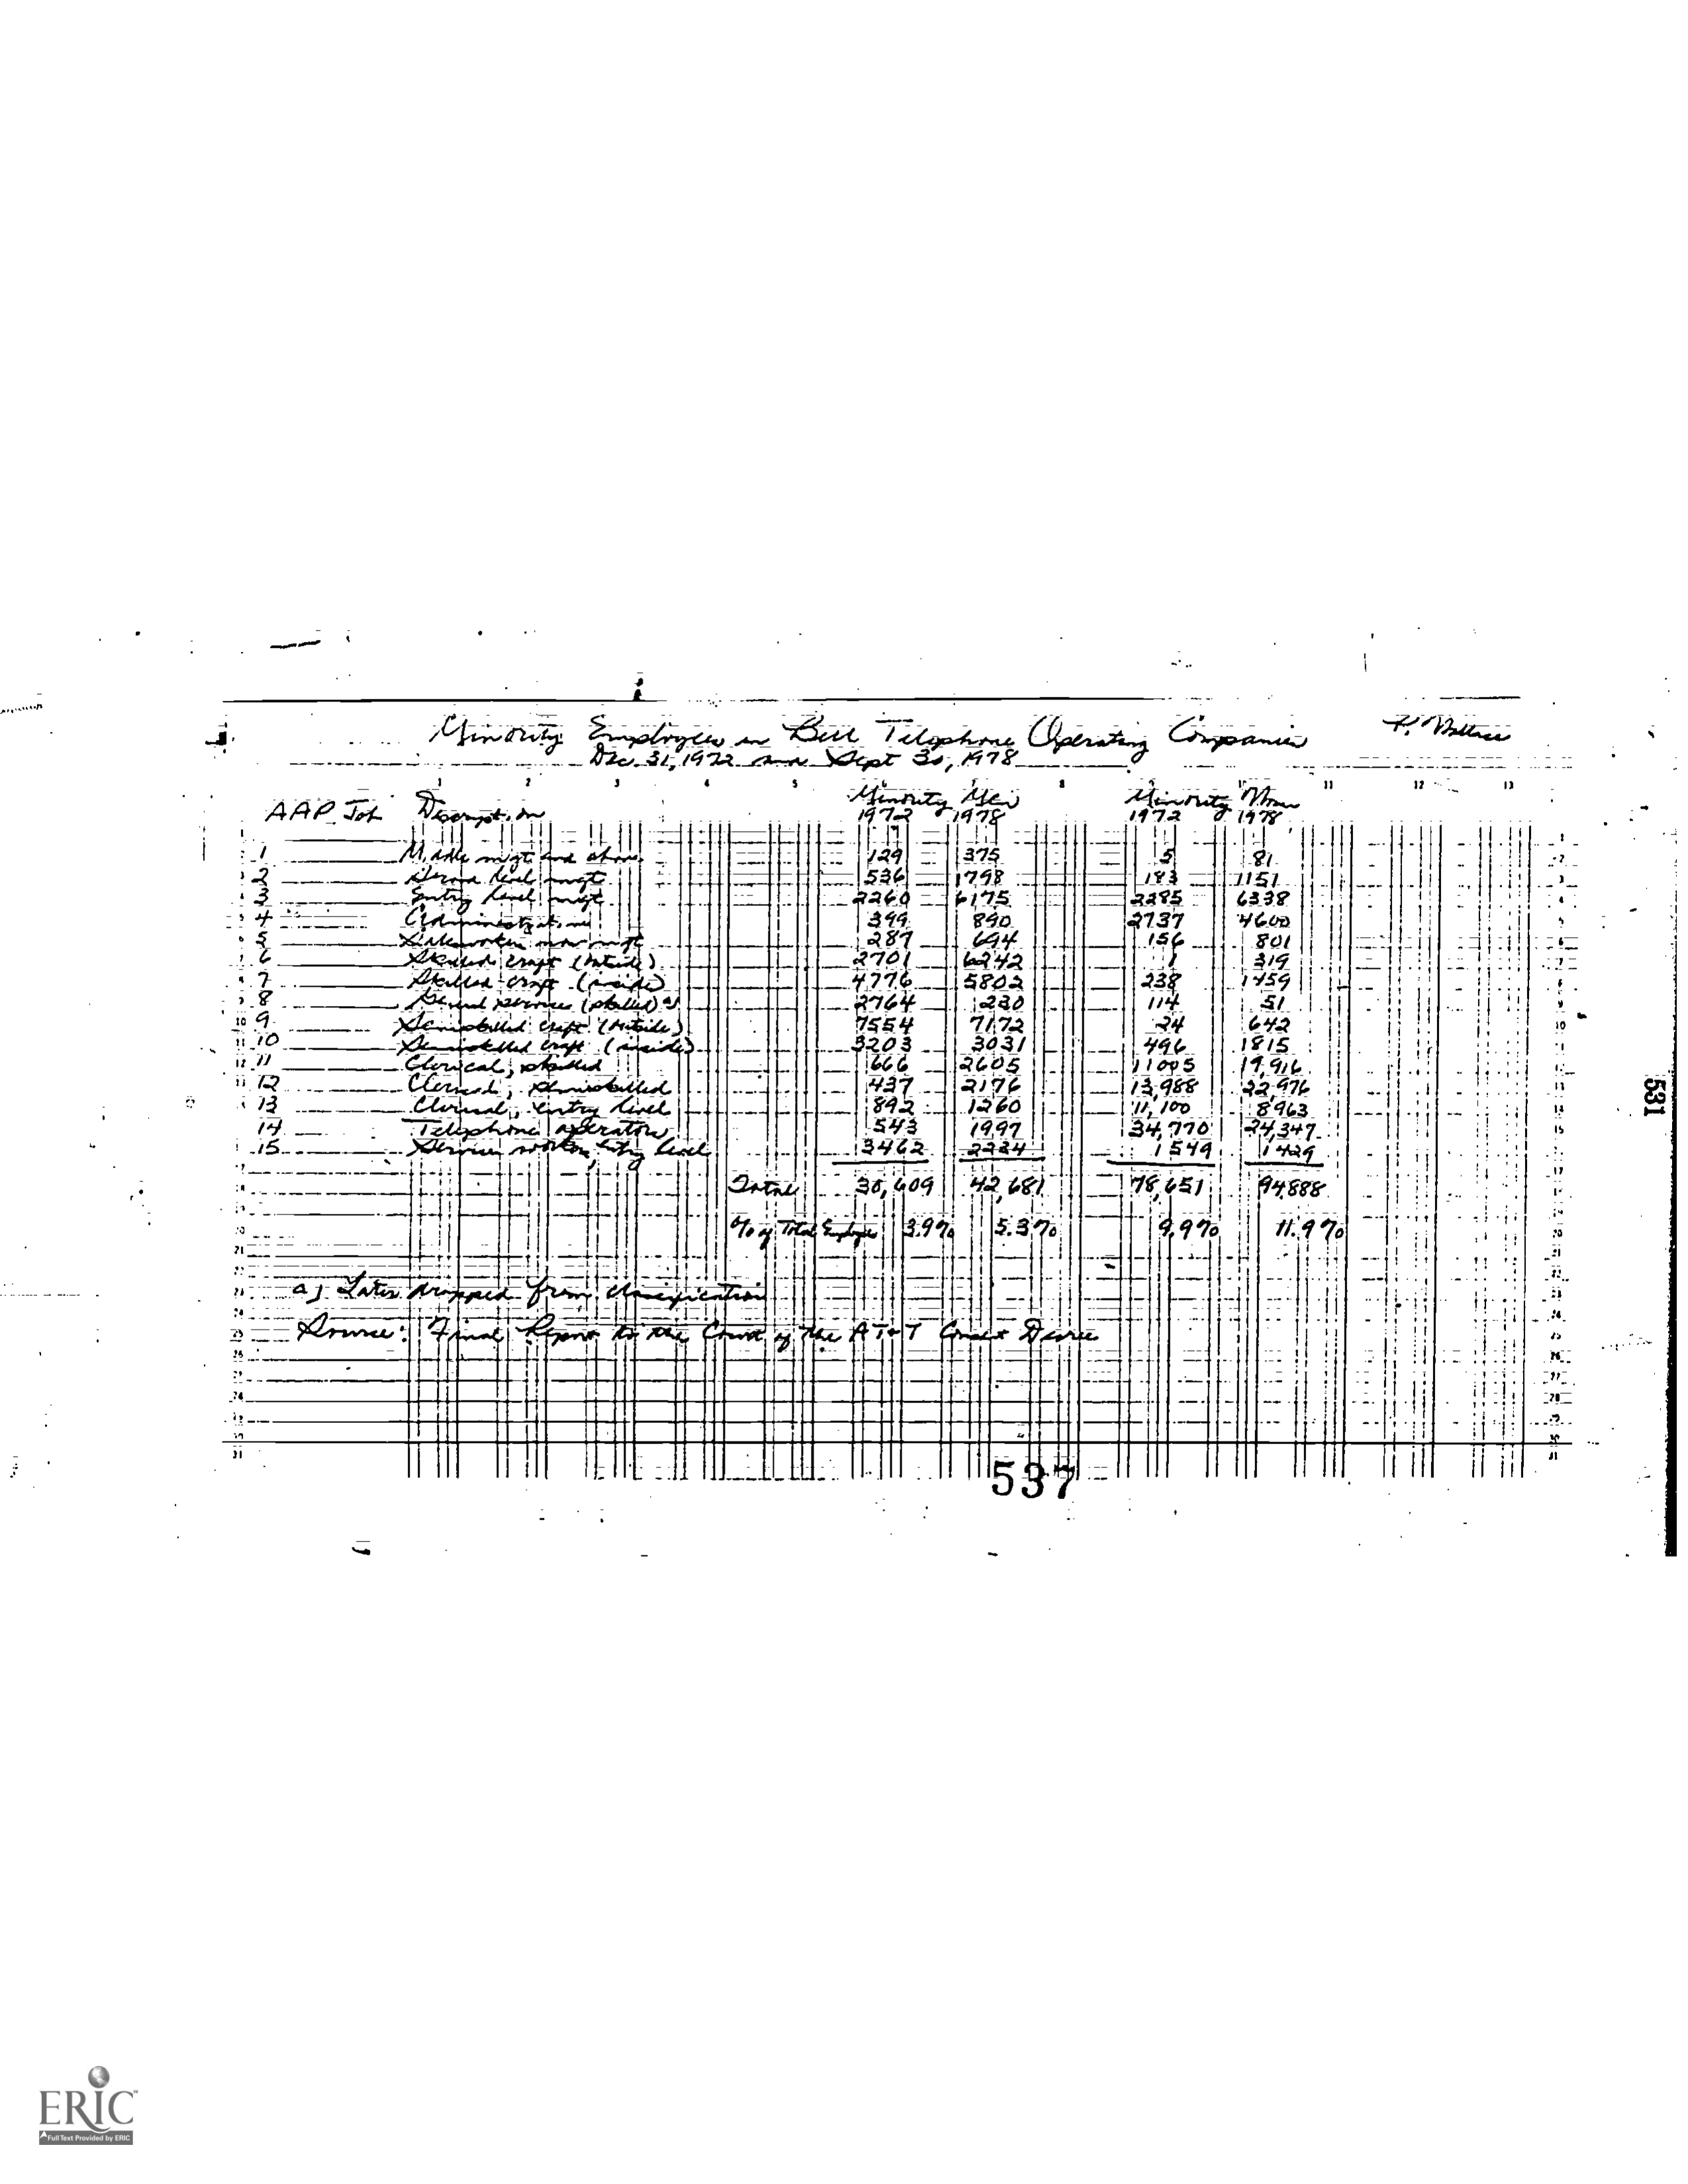 Minority Employees in Bell Telephone Operating Companies P. Wallace
Dec. 31, 1972 and Sept 30, 1978
1 2 3 4 5 6 7 8 9 10 11 12 13
AAP Job Description Minority Men Minority Women
1972 1978 1972 1978
1 Middle mgt and above 129 375 5 81
2 Second level mgt 536 1798 183 1151
3 Entry level mgt 2260 6175 2285 6338
4 Administrative 399 890 2737 4600
5 Salesworker non mgt 287 694 156 801
6 Skilled craft (outside) 2701 6242 1 319
7 Skilled craft (inside) 4776 5802 238 1459
8 General services (skilled) a) 2764 230 114 51
9 Semiskilled craft (outside) 7554 7172 24 642
10 Semiskilled craft (inside) 3203 3031 496 1815
11 Clerical, skilled 666 2605 11005 19,916
12 Clerical, semiskilled 437 2176 13,988 22,976
13 Clerical, entry level 892 1260 11,100 8963
14 Telephone operators 543 1997 34,770 24,347
15 Service workers, entry level 3462 2234 1549 1429
Total 30,609 42,681 78,651 94,888
% of Total Employees 3.9% 5.3% 9.9% 11.9%
a) Later dropped from classification
Source: Final Report to the Court of the AT&T Consent Decree
537
531
ERIC
Full Text Provided by ERIC